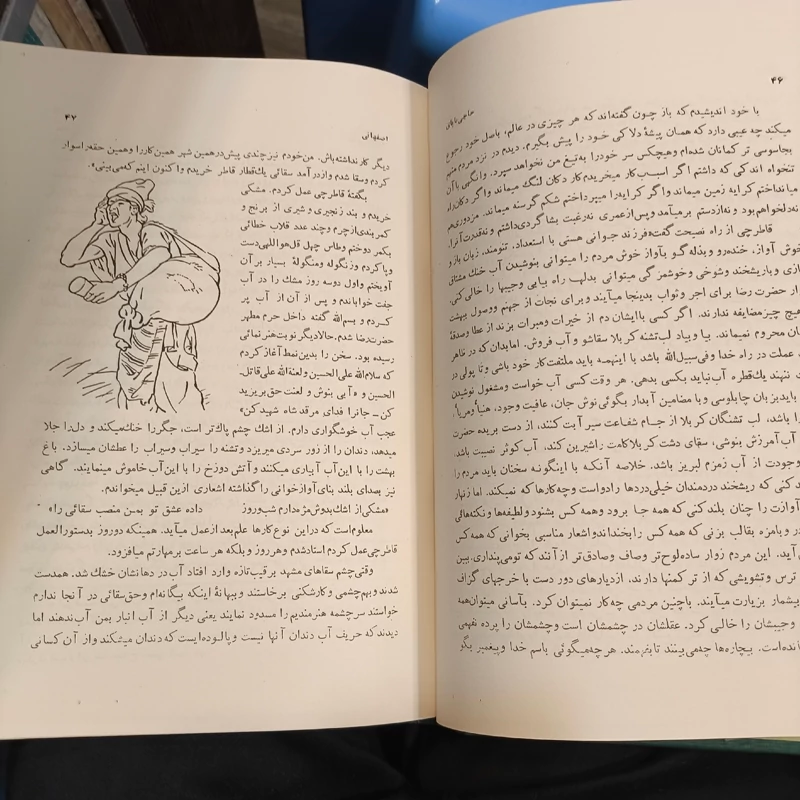 ۴۶
حاجی بابای
با خود اندیشیدم که باز چون گفته‌اند که هر چیزی در عالم، باصل خود رجوع
میکند چه عیبی دارد که همان پیشهٔ دلاکی خود را پیش بگیرم. دیدم در نزد مردم متهم
بجاسوسی تر کمانان شده‌ام و هیچکس سر خود را به تیغ من نخواهد سپرد. وانگهی با آن
تنخواه اندکی که داشتم اگر اسباب کار میخریدم کار دکان لنگ میماند و اگر دکان راه
میانداختم کرایه زمین میماند و اگر کرایه را میپرداختم شکم گرسنه میماند. مزدوری هم
نه دلخواهم بود و نه از دستم برمیآمد و پس از عمری نه رغبت بشاگردی داشتم و نه قدرت آنرا.
قاطرچی از راه نصیحت گفت «فرزند جوانی هستی با استعداد. تنومند، زبان باز و
خوش آواز، خنده‌رو و بذله‌گو بآواز خوش مردم را میتوانی بنوشیدن آب خنک مشتاق
سازی و باریشخند و شوخی و خوشمزگی میتوانی بدلها راه بیابی و جیبها را خالی کنی.
زوار حضرت رضا برای اجر و ثواب بدینجا میآیند و برای نجات از جهنم و وصول بهشت
هیچ چیز مضایقه ندارند. اگر کسی با ایشان دم از خیرات و مبرات بزند از عطا و صدقهٔ
محروم نمیماند. بیا و بیاد لب تشنه کربلا سقا شو و آب فروش. اما بدان که در ظاهر
عملت در راه خدا و فی سبیل‌الله باشد با اینهمه باید ملتفت کار خود باشی و تا پولی در
ننهند یك قطره آب نباید بکسی بدهی. هر وقت کسی آب خواست و مشغول نوشیدن
باید بزبان چاپلوسی و با مضامین آبدار بگوئی نوش جان، عافیت وجود، هنیأ و مریأ.
را باشد، لب تشنگان کربلا از جام شفاعت سیر آبت کنند، از دست بریده حضرت
آب آمرزش بنوشی، سقای دشت کربلا کامت را شیرین کند، آب کوثر نصیبت باشد
وجودت از آب زمزم لبریز باشد. خلاصه آنکه با اینگونه سخنان باید مردم را
کنی که ریشخند دردمندان خیلی دردها را دواست و چه کارها که نمیکند. اما زنهار
آوازت را چنان بلند کنی که همه جا برود و همه کس بشنود و لطیفه‌ها و نکته‌هائی
و بامزه بقالب بزنی که همه کس را بخنداند و اشعار مناسبی بخوانی که همه کس
آید. این مردم زوار ساده‌لوح‌تر و صاف و صادق‌تر از آنند که تو می‌پنداری. بین
ترس و تشویشی که از ترکمنها دارند. از دیارهای دور دست با خرجهای گزاف
بیشمار بزیارت میآیند. با چنین مردمی چه کار نمیتوان کرد. بآسانی میتوان همه
وجیبشان را خالی کرد. عقلشان در چشمشان است و چشمشان را پرده نفهمی
است. بیچاره‌ها چه می‌بینند تا بفهمند. هر چه میگوئی باسم خدا و پیغمبر بگو
۴۷
اصفهانی
دیگر کار نداشته باش. من خودم نیز چندی پیش در همین شهر همین کار را و همین حقه را سوار
کردم و سقا شدم و از درآمد سقائی یك قطار قاطر خریدم و اکنون اینم که می‌بینی».
بگفتهٔ قاطرچی عمل کردم. مشکی
خریدم و بند زنجیری و شیری از برنج و
کمربندی از چرم و چند عدد قلاب خطائی
بکمر دوختم و طاس چهل قل هو اللهی دست
و پا کردم و زنگوله و منگولهٔ بسیار بر آن
آویختم و اول دوسه روز مشك را در آب
جفت خواباندم و پس از آن از آب پر
کردم و بسم‌الله گفته داخل حرم مطهر
حضرت رضا شدم. حالا دیگر نوبت هنرنمائی
رسیده بود. سخن را بدین نمط آغاز کردم
که سلام‌الله علی الحسین و لعنة‌الله علی قاتل
الحسین و «آبی بنوش و لعنت حق بر یزید
کن ـ جانرا فدای مرقد شاه شهید کن»
عجب آب خوشگواری دارم. از اشك چشم پاك‌تر است، جگر را خنك میکند و دل را جلا
میدهد، دندان را از زور سردی میریزد و تشنه را سیراب و سیراب را عطشان میسازد. باغ
بهشت را با این آب آبیاری میکنند و آتش دوزخ را با این آب خاموش مینمایند. گاهی
نیز بصدای بلند بنای آوازخوانی را گذاشته اشعاری از این قبیل میخواندم.
«مشکی از اشك بدوش مژه دارم شب و روز    داده عشق تو بمن منصب سقائی را»
معلوم است که در این نوع کارها علم بعد از عمل میآید. همینکه دو روز بدستورالعمل
قاطرچی عمل کردم استاد شدم و هر روز و بلکه هر ساعت بر مهارتم میافزود.
وقتی چشم سقاهای مشهد برقیب تازه وارد افتاد آب در دهانشان خشك شد. همدست
شدند و بهم‌چشمی و کارشکنی برخاستند و ببهانهٔ اینکه بیگانه‌ام و حق سقائی در آنجا ندارم
خواستند سرچشمه هنرمندیم را مسدود نمایند یعنی دیگر از آب انبار بمن آب ندهند اما
دیدند که حریف آب دندان آنها نیست و پالوده‌ایست که دندان میشکند و از آن کسانی